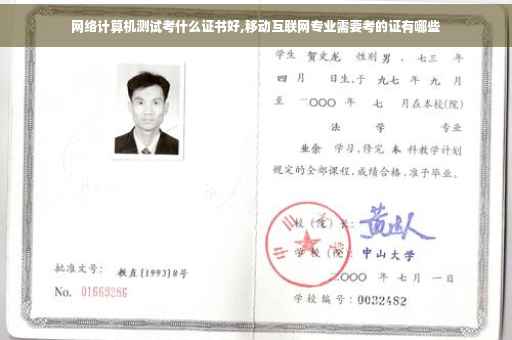 网络计算机测试考什么证书好,移动互联网专业需要考的证有哪些
学生 贺文龙 性别 男 、七三 年
四 月 日生,于 九七 年 九 月
至 二〇〇〇 年 七 月在本校(院)
法 学 专业
业余 学习,修完 本 科教学计划
规定的全部课程,成绩合格,准予毕业。
校(院)长:
学校(院): 中山大学
二〇〇〇 年 七 月 一日
批准文号: 教直[1993]8号
No. 01663286
学校编号: 0032482